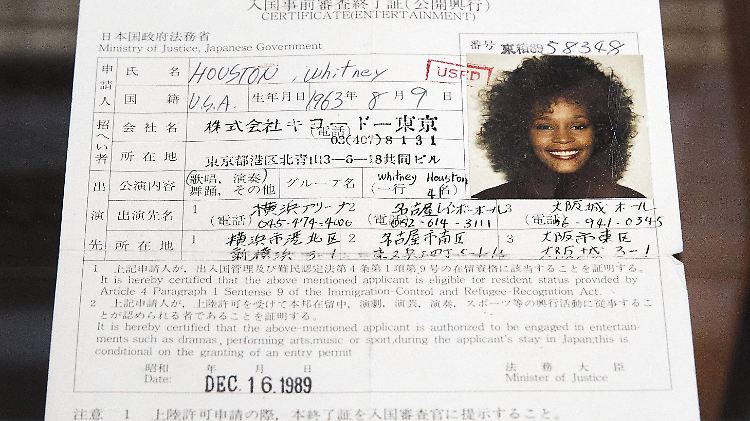 入国事前審査終了証(公開興行)
CERTIFICATE(ENTERTAINMENT)
日本国政府法務省
Ministry of Justice, Japanese Government
番号 東和89 58348
申請人 氏名 HOUSTON, Whitney USED
国籍 U.S.A. 生年月日 1963年 8月 9日
招へい者 会社名 株式会社キョードー東京
(電話) 03(407)8131
所在地 東京都港区北青山3-6-18共同ビル
出演先 公演内容 (歌唱、演奏) グループ名 Whitney Houston
舞踊、その他 (一行 4名)
出演先名 1 横浜アリーナ 2 名古屋レインボーホール 3 大阪城ホール
(電話) 045-474-4000 (電話) 052-614-3111 (電話) 06-941-0345
所在地 1 横浜市港北区 2 名古屋市南区 3 大阪市東区
新横浜3-1 大阪城3-1
1 上記申請人が、出入国管理及び難民認定法第4条第1項第9号の在留資格に該当することを証明する。
It is hereby certified that the above-mentioned applicant is eligible for resident status provided by
Article 4 Paragraph 1 Sentense 9 of the Immigration-Control and Refugee-Recognition Act.
2 上記申請人が、上陸許可を受けて本邦在留中、演劇、演芸、演奏、スポーツ等の興行活動に従事するこ
とが認められる者であることを証明する。
It is hereby certified that the above-mentioned applicant is authorized to be engaged in entertain-
ments such as dramas, performing arts,music or sport,during the applicant's stay in Japan;this is
conditional on the granting of an entry permit
昭和 年 月 日 法務大臣
Date: DEC. 16.1989 Minister of Justice
注意 1 上陸許可申請の際、本終了証を入国審査官に提示すること。